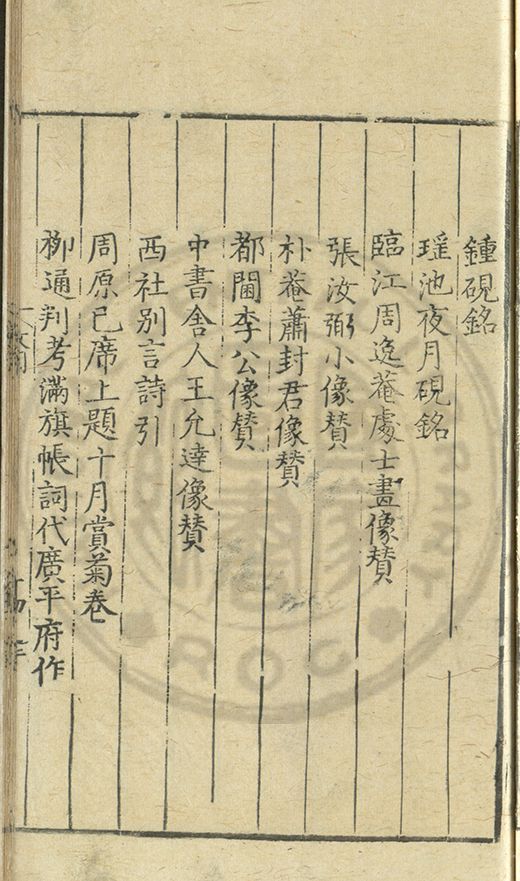 鍾硯銘
瑶池夜月硯銘
臨江周逸菴處士畫像贊
張汝弼小像贊
朴菴蕭封君像贊
都閫李公像贊
中書舍人王允達像贊
西社别言詩引
周原已席上題十月賞菊卷
柳通判考滿旗帳詞代廣平府作